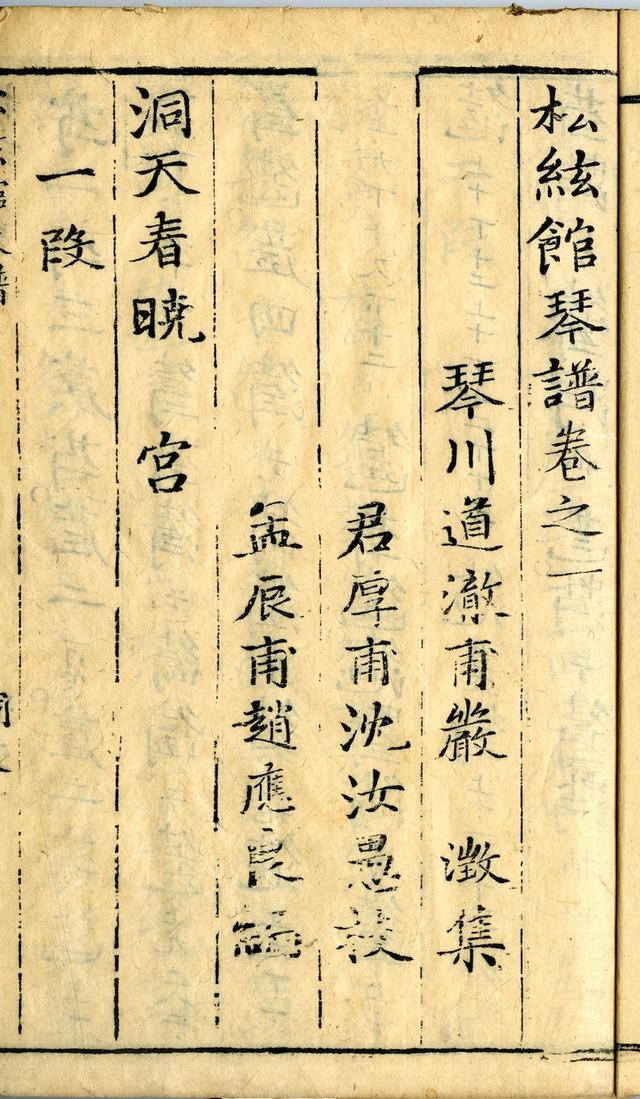 松絃館琴譜卷之一
琴川道澈甫嚴 澂集
君厚甫沈汝愚校
孟辰甫趙應良
洞天春曉 宮
一段